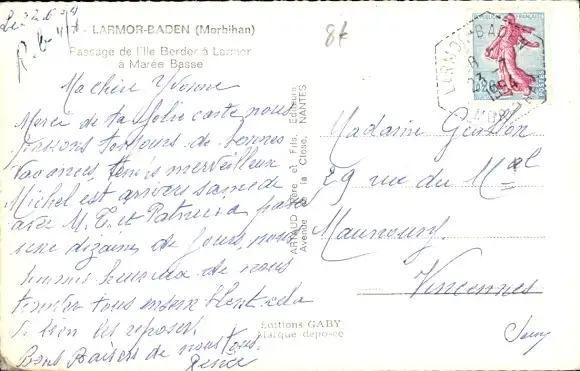 Le 22.6.
- LARMOR-BADEN (Morbihan)
Passage de l'Ile Berder à Larmor
à Marée Basse
8f
Ma chère Yvonne
Merci de ta jolie carte nous
passons toujours de bonnes
vacances, temps merveilleux
Michel est arrivé samedi
avec M. T. et Patricia passer
une dizaine de jours, nous
sommes heureux de nous
tous ensemble cela
si bien les reposer
Bons Baisers de nous tous.
Renée
ARTAUD Père et Fils, Editeurs
Avenue de la Close, NANTES
Editions GABY
Marque déposée
REPUBLIQUE FRANÇAISE
POSTES
LARMOR-BADEN
MORBIHAN
Madame
29 rue du Mal
Maunoury
Vincennes